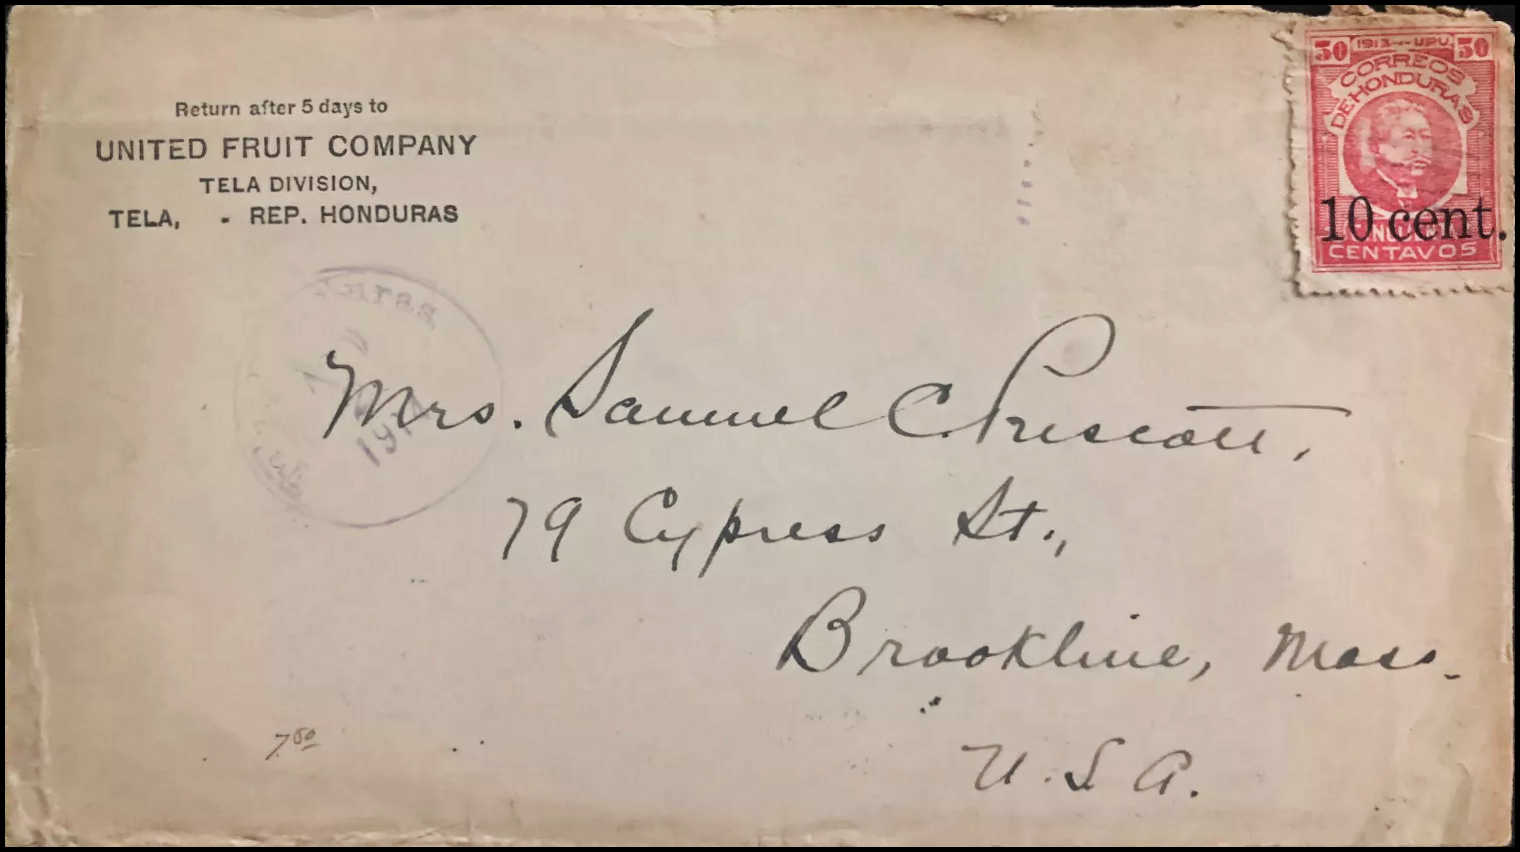 Return after 5 days to
UNITED FRUIT COMPANY
TELA DIVISION,
TELA, - REP. HONDURAS
50 1913--UPU 50
CORREOS
DE HONDURAS
10 cent.
CENTAVOS
Mrs. Samuel C. Prescott,
79 Cypress St.,
Brookline, Mass.
U.S.A.
7.50